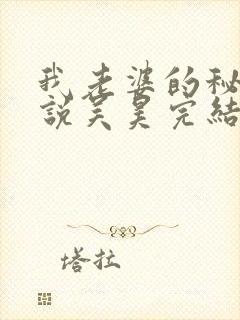 我老婆的秘
說吴昊完結
塔拉